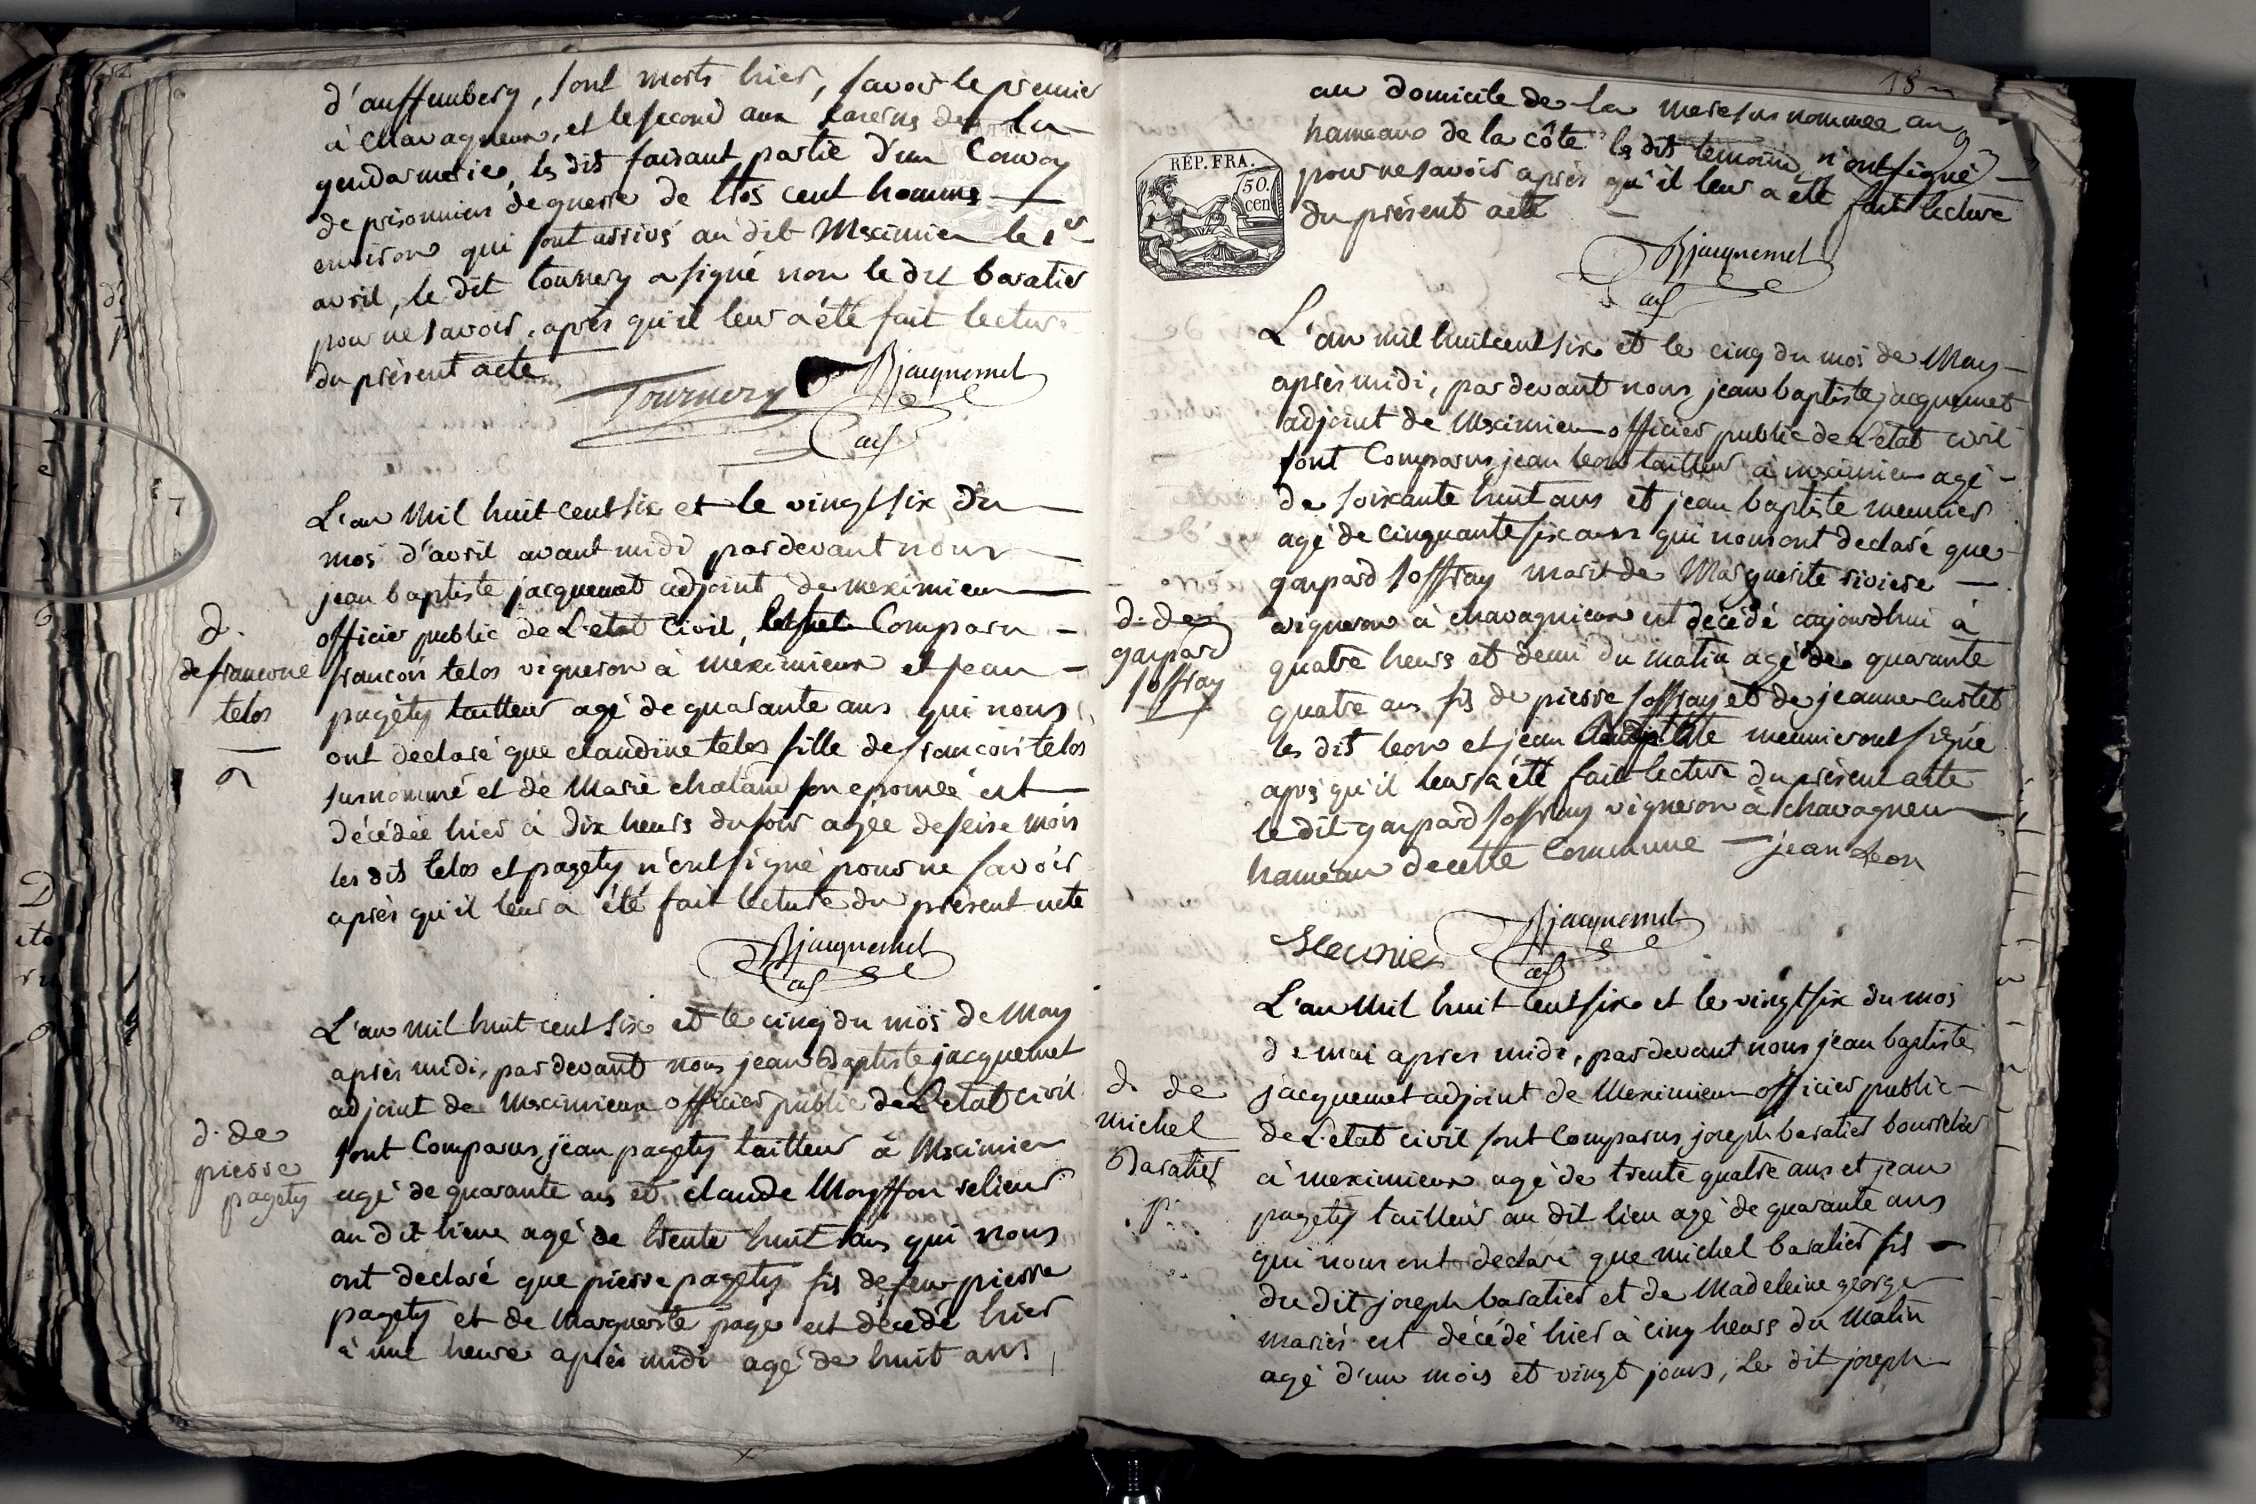 d'auffemberg, sont morts hier, savoir le premier
à Chavagneux, et le second aux casernes de la
gendarmerie, les dis faisant partie d'un Convoy
de prisonniers de guerre de trois cent hommes
environ qui sont arrivés au dit Meximieu le 1er
avril, le dit tournery a signé non le dit baratier
pour ne savoir, après qu'il leur a été fait lecture
du présent acte
Tournery Bjacquemet
adj
L'an Mil huit cent six et le vingt six du
mois d'avril avant midi pardevant nous
jean baptiste jacquemet adjoint de meximieu
d.
officier public de L'etat Civil, Comparu
de francoise
francois telos vigneron à méximieux et jean
telos
pagéty tailleur agé de quarante ans qui nous
ont declaré que claudine telos fille de francois telos
surnommé et de Marie chaland son epousée est
décédée hier à dix heurs du soir agée de seise mois
les dits telos et pagety n'ont signé pour ne savoir
après qu'il leur a été fait lecture du présent acte
Bjacquemet
adj
L'an mil huit cent six et le cinq du mois de May
après midi, pardevant nous jean Baptiste jacquemet
adjoint de Meximieux officier public de L'etat civil
d. de
sont Comparus, jean pagety tailleur à Meximieu
pierre
pagety
agé de quarante ans et claude Moyffon relieur
au dit lieux agé de trente huit ans qui nous
ont declaré que pierre pagety fis de feu pierre
pagety et de Marguerite page est décédé hier
à une heure après midi agé de huit ans,
18
RÉP. FRA.
50.
cen
au domicile de la mere susnommée au
hameau de la côte les dits temoins n'ont signé
pour ne savoir après qu'il leur a été fait lecture
du présent acte
Bjacquemet
adj
L'an mil huit cent six et le cinq du mois de May
après midi, pardevant nous jean baptiste jacquemet
adjoint de Meximieu officier public de L'etat civil
sont Comparus jean leon tailleur à meximieu agé
de soixante huit ans et jean baptiste meunier
agé de cinquante six ans qui nous ont declaré que
gaspard soffray marit de Marguerite riviere
d. de
gaspard
soffray
vigneron à chavagnieux est décédé aujourdhui à
quatre heurs et demi du matin agé de quarante
quatre ans fis de pierre soffray et de jeanne curtet
les dits leon et jean baptiste meunier ont signé
après qu'il leur a été fait lecture du présent acte
le dit gaspard soffray vigneron à chavagneu
hameau de cette Commune jean Leon
Meunier Bjacquemet
adj
L'an Mil huit cent six et le vingt six du mois
de mai après midi, pardevant nous jean baptiste
d. de
michel
Baratier
p.
jacquemet adjoint de Meximieu officier public
de L'etat civil sont Comparus joseph baratier bourrelier
à meximieux agé de trente quatre ans et jean
pagety tailleur au dit lieu agé de quarante ans
qui nous ont declaré que michel baratier fis
du dit joseph baratier et de Madeleine george
mariés est décédé hier à cinq heurs du matin
agé d'un mois et vingt jours, Le dit joseph